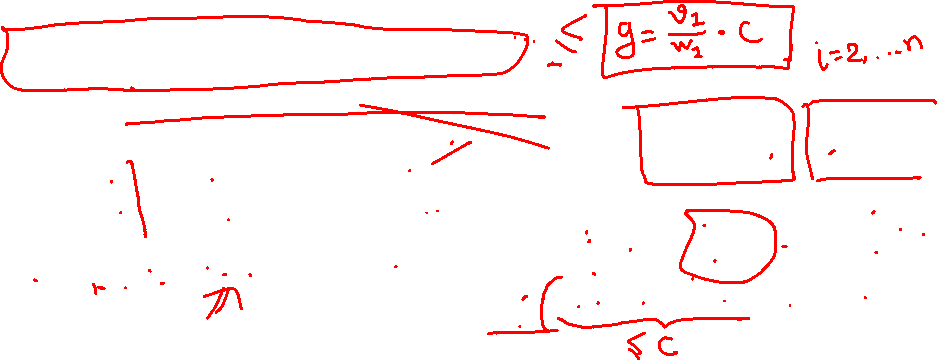 ≤ g = v₁/w₁ · C i=2,...n
≤ C